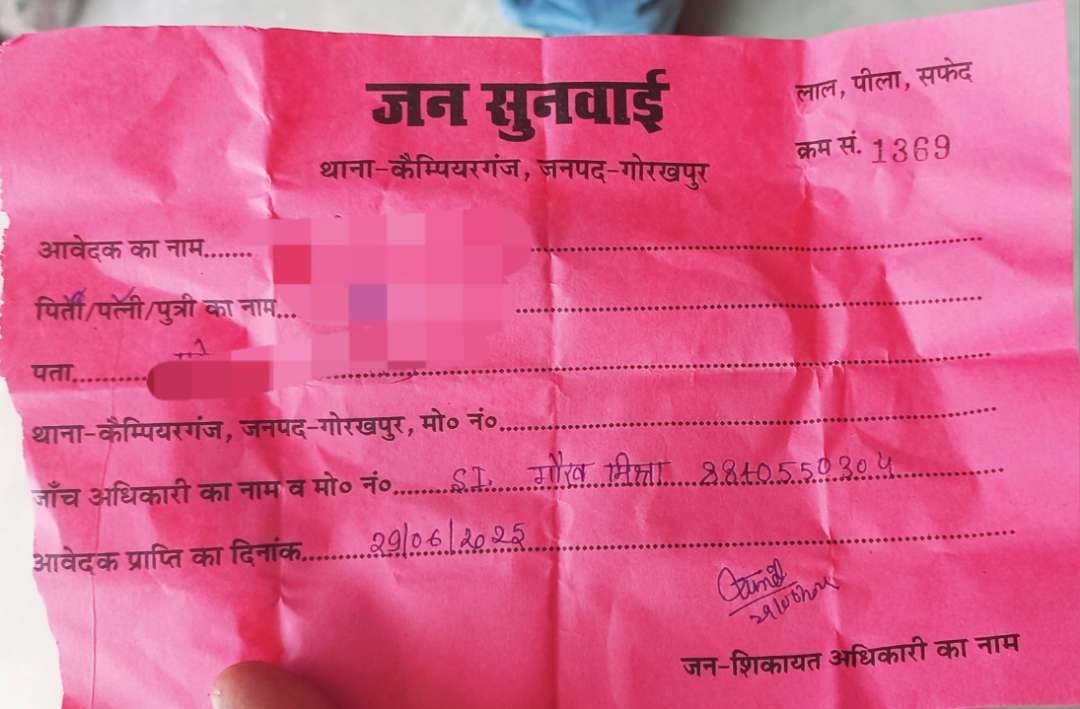 जन सुनवाई
लाल, पीला, सफेद
थाना-कैम्पियरगंज, जनपद-गोरखपुर
क्रम सं. 1369
आवेदक का नाम.......
पिता/पत्नी/पुत्री का नाम...
पता........
थाना-कैम्पियरगंज, जनपद-गोरखपुर, मो० नं०........
जाँच अधिकारी का नाम व मो० नं०........ SI. मिश्रा 8840550304
आवेदक प्राप्ति का दिनांक........ 29/06/2025
जन-शिकायत अधिकारी का नाम